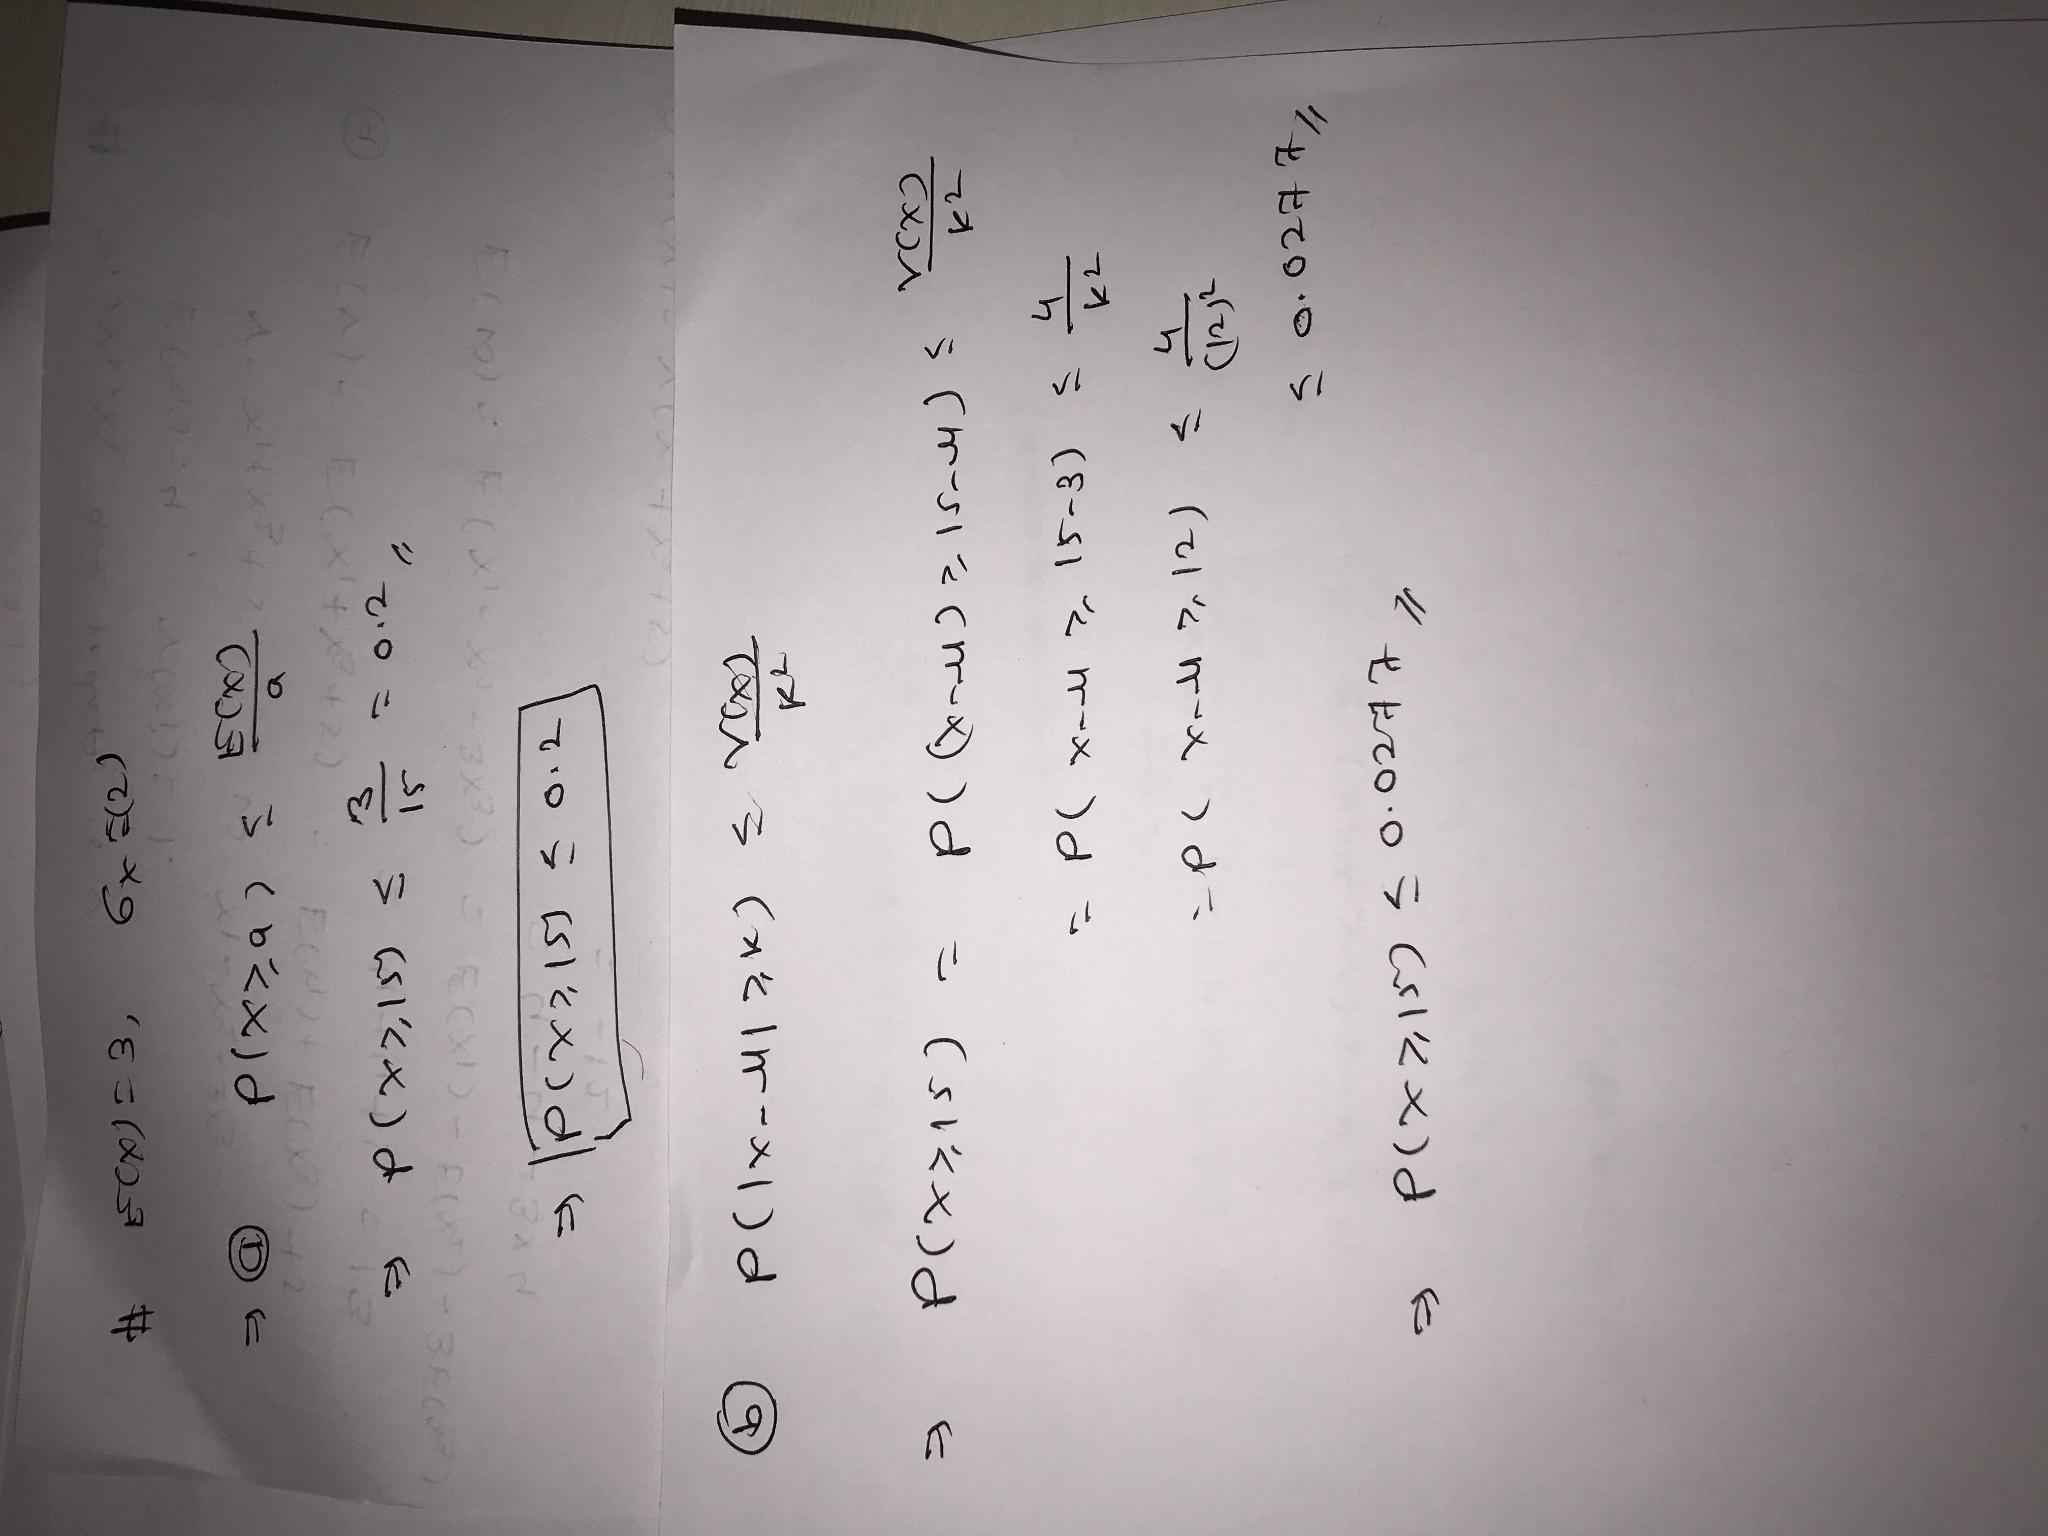 # E(X) = 3, σx = (2)
⇒ ⓐ P(X ≥ a) ≤ E(X)/a
⇒ P(X ≥ 15) ≤ 3/15 = 0.2 //
⇒ P(X ≥ 15) ≤ 0.2
ⓑ P(|X-μ| ≥ k) ≤ V(X)/k²
⇒ P(X ≥ 15) = P((X-μ) ≥ 15-μ) ≤ V(X)/k²
= P(X-μ ≥ 15-3) ≤ 4/k²
= P(X-μ ≥ 12) ≤ 4/(12)²
≤ 0.0277 //
⇒ P(X ≥ 15) ≤ 0.0277 //